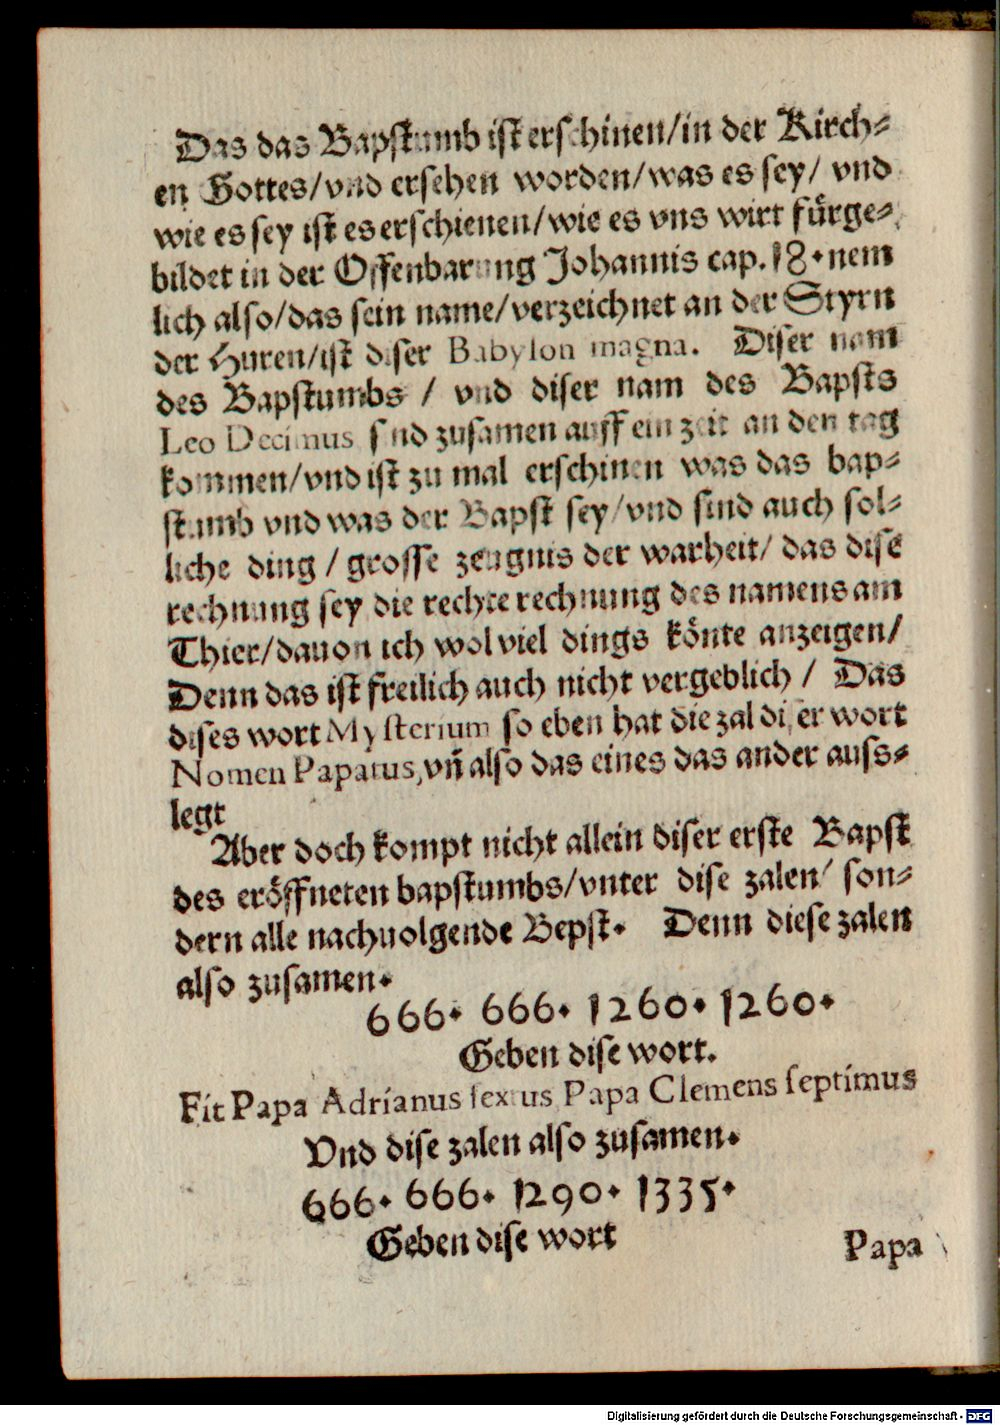 Das das Bapstumb ist erschinen/in der Kirch⸗
en Gottes/vnd ersehen worden/was es sey/ vnd
wie es sey ist es erschienen/wie es vns wirt fürge⸗
bildet in der Offenbarung Johannis cap. 18. nem
lich also/das sein name/verzeichnet an der Styrn
der Huren/ist diser Babylon magna. Diser nam
des Bapstumbs / vnd diser nam des Bapsts
Leo Decimus sind zusamen auff ein zeit an den tag
kommen/vnd ist zu mal erschinen was das bap⸗
stumb vnd was der Bapst sey/vnd sind auch sol⸗
liche ding / grosse zeugnis der warheit/ das dise
rechnung sey die rechte rechnung des namens am
Thier/dauon ich wol viel dings könte anzeigen/
Denn das ist freilich auch nicht vergeblich / Das
dises wort Mysterium so eben hat die zal diser wort
Nomen Papatus, vñ also das eines das ander auss⸗
legt
Aber doch kompt nicht allein diser erste Bapst
des eröffneten bapstumbs/vnter dise zalen/ son⸗
dern alle nachuolgende Bepst. Denn diese zalen
also zusamen.
666. 666. 1260. 1260.
Geben dise wort.
Fit Papa Adrianus sextus Papa Clemens septimus
Vnd dise zalen also zusamen.
666. 666. 1290. 1335.
Geben dise wort
Papa
Digitalisierung gefördert durch die Deutsche Forschungsgemeinschaft - DFG